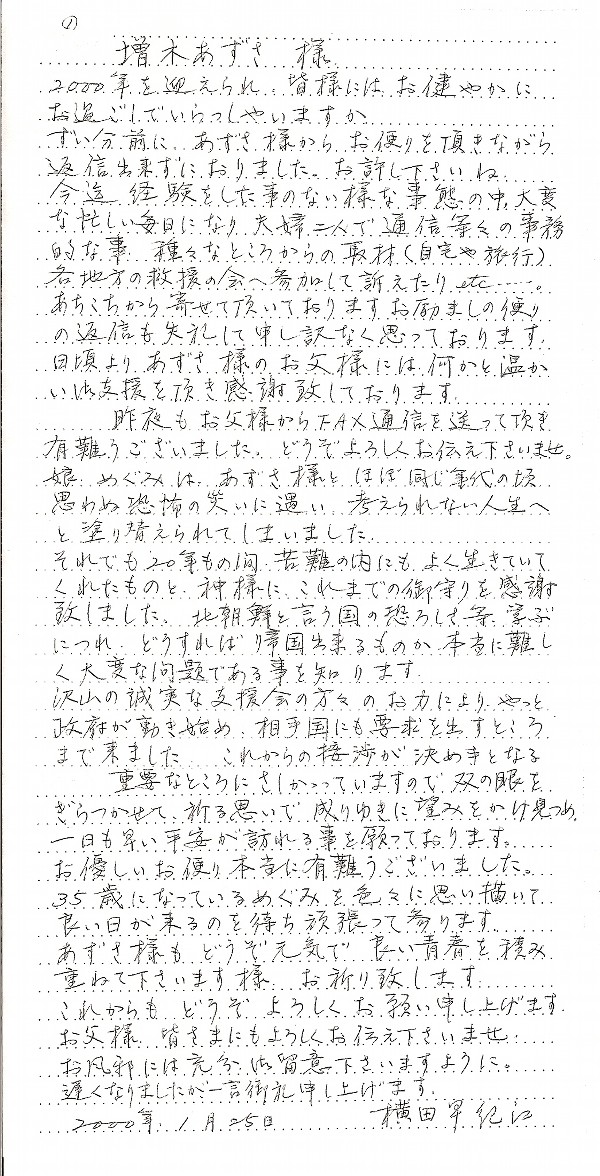 ①
増木あずさ 様
2000年を迎えられ、皆様にはお健やかに
お過ごしでいらっしやいますか
ずい分前に、あずさ様からお便りを頂きながら
返信出来ずにおりました。お許し下さいね
今迄 経験をした事のない様な事態の中、大変
な忙しい毎日になり、夫婦二人で通信等々の事務
的な事、種々なところからの取材(自宅や旅行)
各地方の救援の会へ参加して訴えたり、etc……。
あちこちから寄せて頂いておりますお励ましの便り
の返信も失礼して申し訳なく思っております。
日頃より あずさ様のお父様には何かと温か
い御支援を頂き感謝致しております。
昨夜もお父様からFAX通信を送って頂き
有難うございました。どうぞよろしくお伝え下さいませ。
娘 めぐみは、あずさ様と ほぼ同じ年代の頃
思わぬ恐怖の災いに遭い、考えられない人生へ
と塗り替えられてしまいました
それでも20年もの間、苦難の内にも よく生きていて
くれたものと、神様に、これまでの御守りを感謝
致しました。北朝鮮と言う国の恐ろしさ等、学ぶ
につれ、どうすれば帰国出来るものか、本当に難し
く大変な問題である事を知ります
沢山の誠実な支援会の方々のお力により、やっと
政府が動き始め、相手国にも要求を出すところ
まで来ました これからの接渉が決め手となる
重要なところにさしかかっていますので 双の眼を
ぎらつかせて、祈る思いで 成りゆきに望みをかけ見つめ、
一日も早い平安が訪れる事を願っております。
お優しいお便り本当に有難うございました。
35歳になっているめぐみを色々に思い描いて
良い日が来るのを待ち頑張って参ります
あずさ様も どうぞ元気で 良い青春を積み
重ねて下さいます様 お祈り致します
これからも どうぞ よろしくお願い申し上げます
お父様 皆さまにもよろしくお伝え下さいませ
お風邪には充分御留意下さいますように。
遅くなりましたが一言御礼申し上げます。
2000年.1月25日 横田早紀江